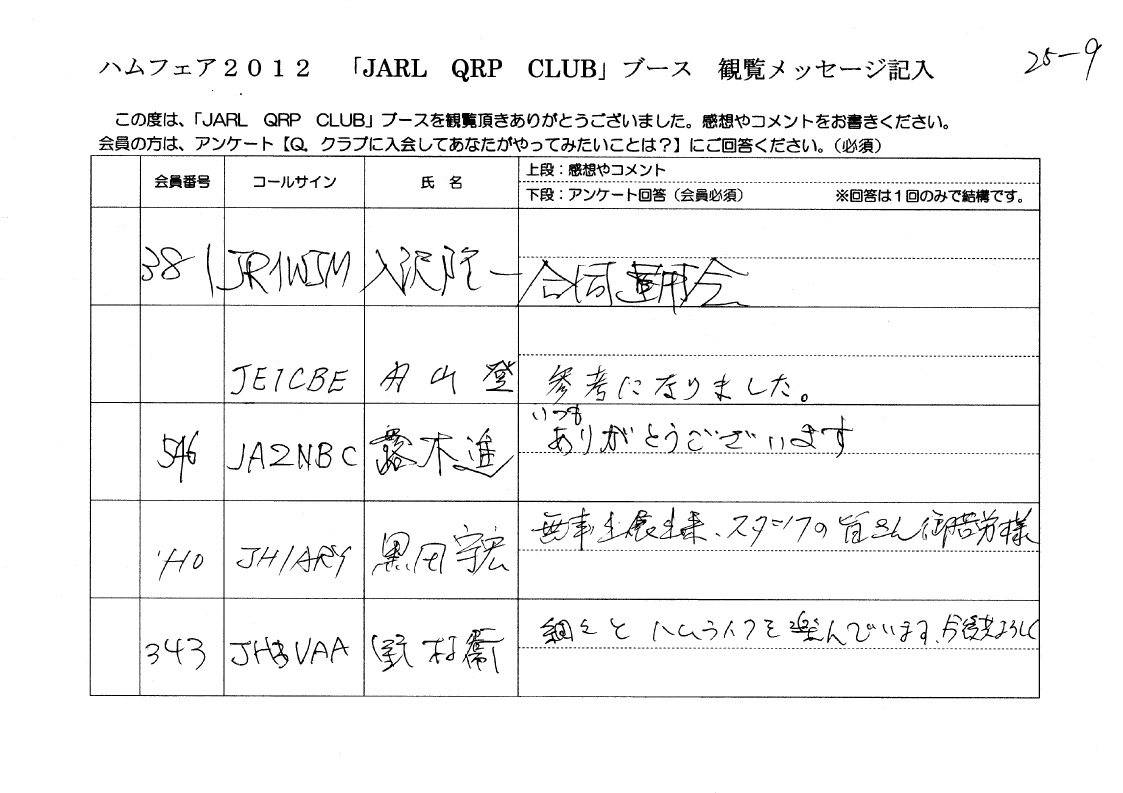 25-9
ハムフェア2012 「JARL QRP CLUB」ブース 観覧メッセージ記入
この度は、「JARL QRP CLUB」ブースを観覧頂きありがとうございました。感想やコメントをお書きください。
会員の方は、アンケート【Q. クラブに入会してあなたがやってみたいことは?】にご回答ください。(必須)
会員番号 コールサイン 氏名 上段:感想やコメント
下段:アンケート回答(会員必須) ※回答は1回のみで結構です。
381 JR1WJM 入沢 一 合同運用会
JE1CBE 山 登 参考になりました。
いつも
546 JA2NBC 露木進 ありがとうございます
無事出展出来、スタッフの皆さん御苦労様
JH1ARY 黒田 宏
細々とハムライフを楽んでいます、今後もよろしく
343 VAA 野村衛